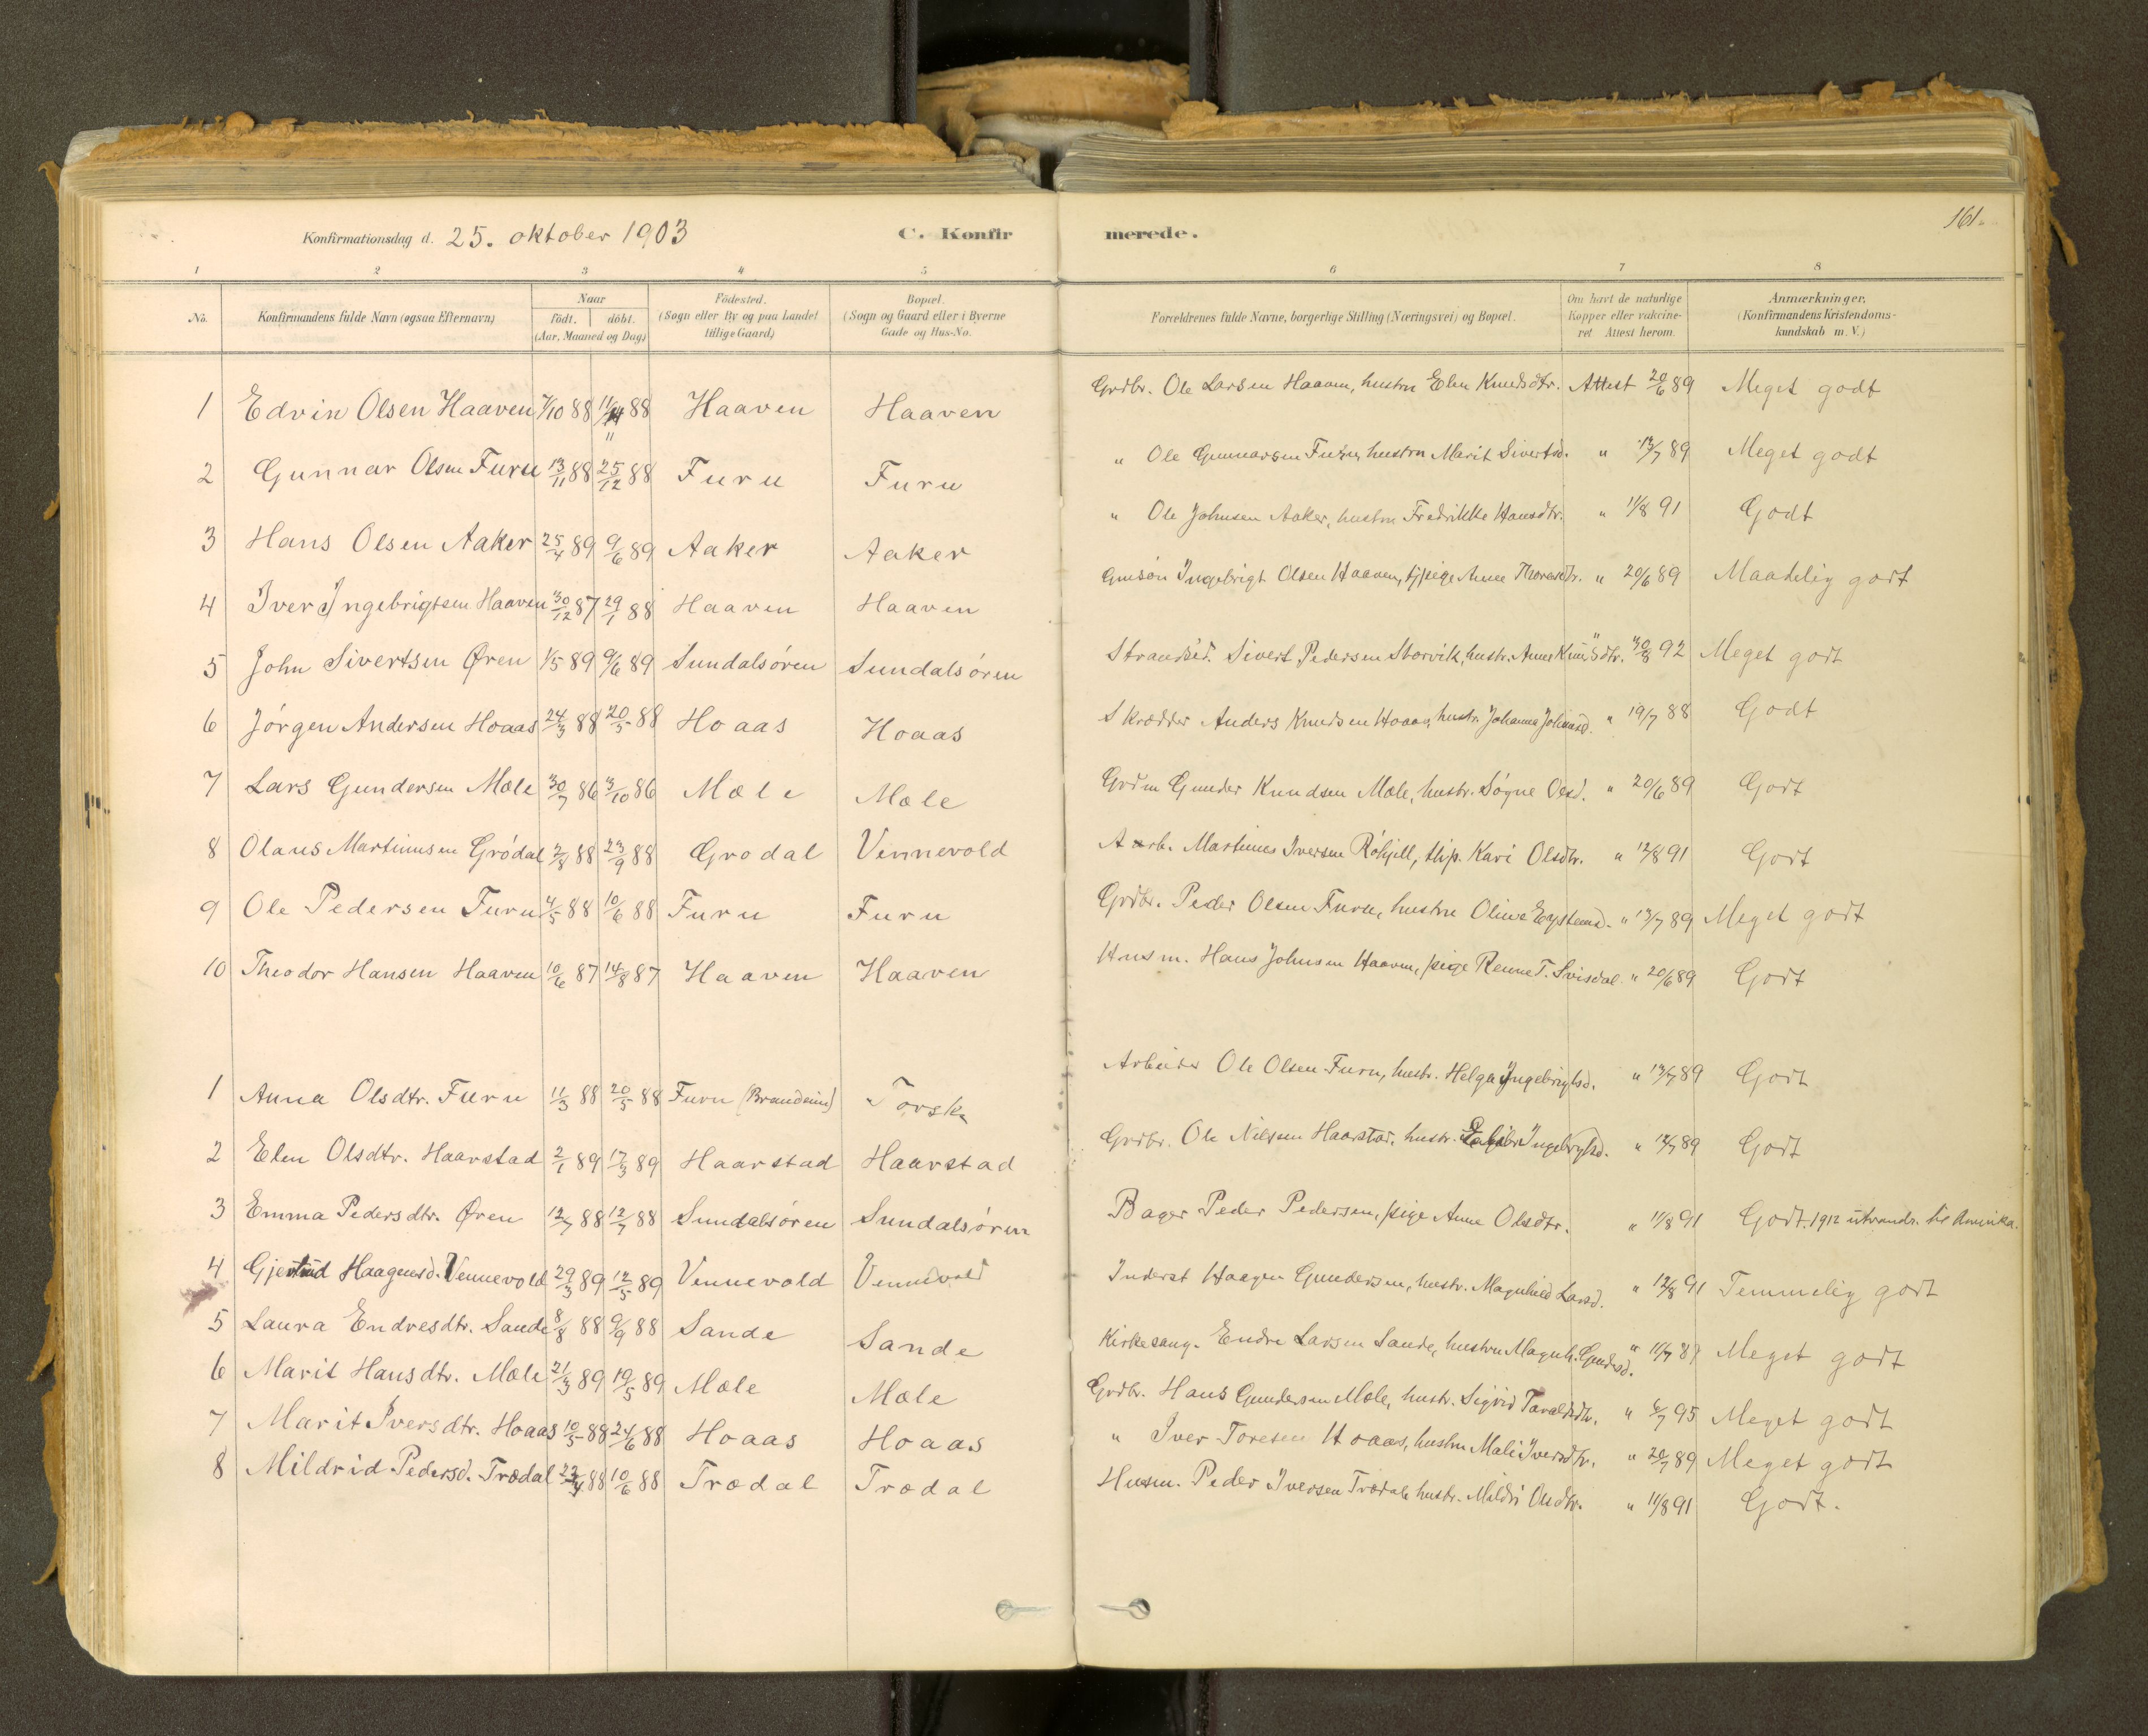 Konfirmationsdag d. 25. oktober 1903 C. Konfirmerede. 161.
1 2 3 4 5 6 7 8
No. Konfirmandens fulde Navn (ogsaa Efternavn) Naar födt. döbt. (Aar, Maaned og Dag) Födested. (Sogn eller By og paa Landet tillige Gaard) Bopæl. (Sogn og Gaard eller i Byerne Gade og Hus-No. Forældrenes fulde Navne, borgerlige Stilling (Næringsvei) og Bopæl. Om havt de naturlige Kopper eller vakcineret Attest herom. Anmærkninger, (Konfirmandens Kristendomskundskab m. V.)
1 Edvin Olsen Haaven 7/10 88 11/11 88 Haaven Haaven Grdbr. Ole Larsen Haaven, hustru Elen Knudsdtr. Attest 20/6 89 Meget godt
2 Gunnar Olsen Furu 13/11 88 25/12 88 Furu Furu " Ole Gunnarsen Furu, hustru Marit Sivertsd. " 13/7 89 Meget godt
3 Hans Olsen Aaker 25/4 89 9/6 89 Aaker Aaker " Ole Johnsen Aaker, hustru Fredrikke Hansdtr. " 11/8 91 Godt
4 Iver Ingebrigtsen Haaven 30/12 87 29/1 88 Haaven Haaven Gmsön Ingebrigt Olsen Haaven, tj.pige Anne Thoresdtr. " 20/6 89 Maadelig godt
5 John Sivertsen Øren 1/5 89 9/6 89 Sundalsören Sundalsören Strandsid. Sivert Pedersen Storvik, hustr. Anne Knudsdtr. " 30/8 92 Meget godt
6 Jörgen Andersen Hoaas 24/3 88 20/5 88 Hoaas Hoaas Skrædder Anders Knudsen Hoaas, hustr. Johanna Johansd. " 19/7 88 Godt
7 Lars Gundersen Mæle 30/7 86 3/10 86 Mæle Mæle Grdm Gunder Knudsen Mæle, hustr. Sögne Olsd. " 20/6 89 Godt
8 Olaus Martinusen Grödal 2/8 88 23/9 88 Grodal Vennevold Aarb. Martinus Iversen Röhjell, tlip. Kari Olsdtr. " 12/8 91 Godt
9 Ole Pedersen Furu 4/5 88 10/6 88 Furu Furu Grdbr. Peder Olsen Furu, hustru Olive Eystensd. " 13/7 89 Meget godt
10 Theodor Hansen Haaven 10/6 87 14/8 87 Haaven Haaven Husm. Hans Johnsen Haaven, pige Renne T. Svisdal. " 20/6 89 Godt
1 Anna Olsdtr. Furu 11/3 88 20/5 88 Furu Torske Arbeider Ole Olsen Furu, hustr. Helga Ingebrigtsd. " 13/7 89 Godt
2 Elen Olsdtr. Haarstad 2/1 89 17/3 89 Haarstad Haarstad Grdbr. Ole Nilsen Haarstad, hustr. Ingebrigtsd. " 12/7 89 Godt
3 Emma Pedersdtr. Øren 12/7 88 12/7 88 Sundalsören Sundalsören Bager Peder Pedersen, pige Anne Olsdtr. " 11/8 91 Godt. 1912 utvandr. til Amerika.
4 Gjertrud Haagensd. Vennevold 29/3 89 12/5 89 Vennevold Vennevold Inderst Haagen Gundersen, hustr. Magnhild Larsd. " 12/8 91 Temmelig godt
5 Laura Endresdtr. Sande 8/8 88 9/9 88 Sande Sande Kirkesang. Endre Larsen Sande, hustru Magnh. Gundersd. " 11/7 89 Meget godt
6 Marit Hansdtr. Mæle 21/3 89 19/5 89 Mæle Mæle Grdbr. Hans Gundersen Mæle, hustr. Sigrid Tavaldsdtr. " 6/7 95 Meget godt
7 Marit Iversdtr. Hoaas 10/5 88 24/6 88 Hoaas Hoaas " Iver Toresen Hoaas, hustru Mali Iversdtr. " 20/7 89 Meget godt
8 Mildrid Pedersd. Trædal 23/4 88 10/6 88 Trædal Trædal Husm. Peder Iversen Trædal, hustr. Mildri Olsdtr. " 11/8 91 Godt.